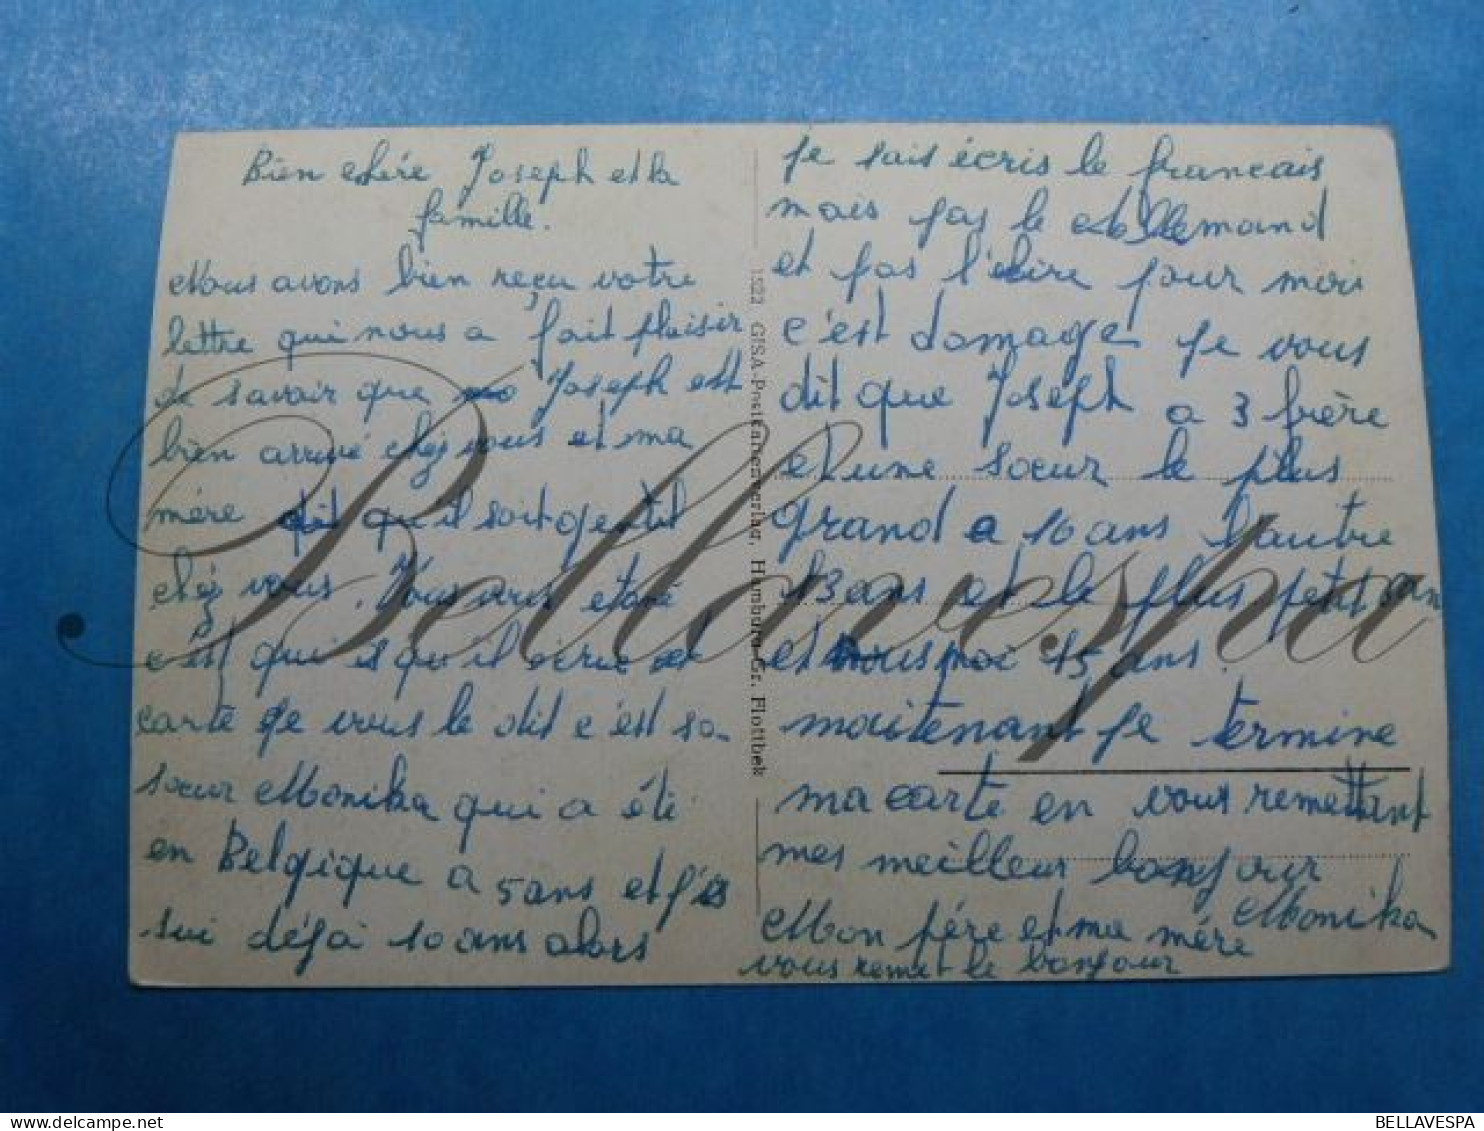 Bien chére Joseph et la
famille.
Nous avons bien reçu votre
lettre qui nous a fait plaisir
de savoir que Joseph est
bien arrivé chez vous et ma
mére dit qu'il soit gentil
chez vous. Vous
c'est qui qu'il
carte je vous le dit c'est sa
sœur Monika qui a été
en Belgique a 5 ans et j'
sui déja 10 ans alors
je sais écris le francais
mais pas le Allemand
et pas l'lire pour moi
c'est domage je vous
dit que Joseph a 3 frère
et une sœur le plus
grand a 16 ans l'autre
13 ans et le plus petit an
et moi 15 ans.
maitenant je termine
ma carte en vous remettant
mes meilleur bonjour
Monika
Mon pére et ma mére
vous remet le bonjour
1522 GISA-Postkartenverlag, Hamburg-Gr. Flottbek
Bellavespa
BELLAVESPA